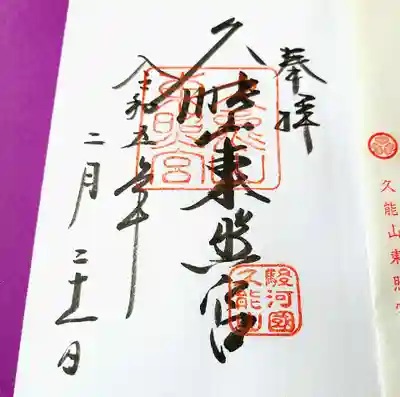 奉拝
久能山東照宮
令和五年
二月二十一日
久能山東照宮
駿河國
久能山
久能山東照宮